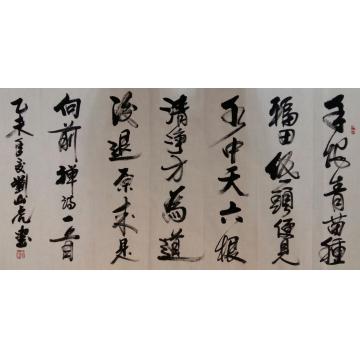 手把青苗種
福田低頭便見
水中天六根
清淨方為道
後退原來是
向前禪詩一首
乙未年劉山虎書